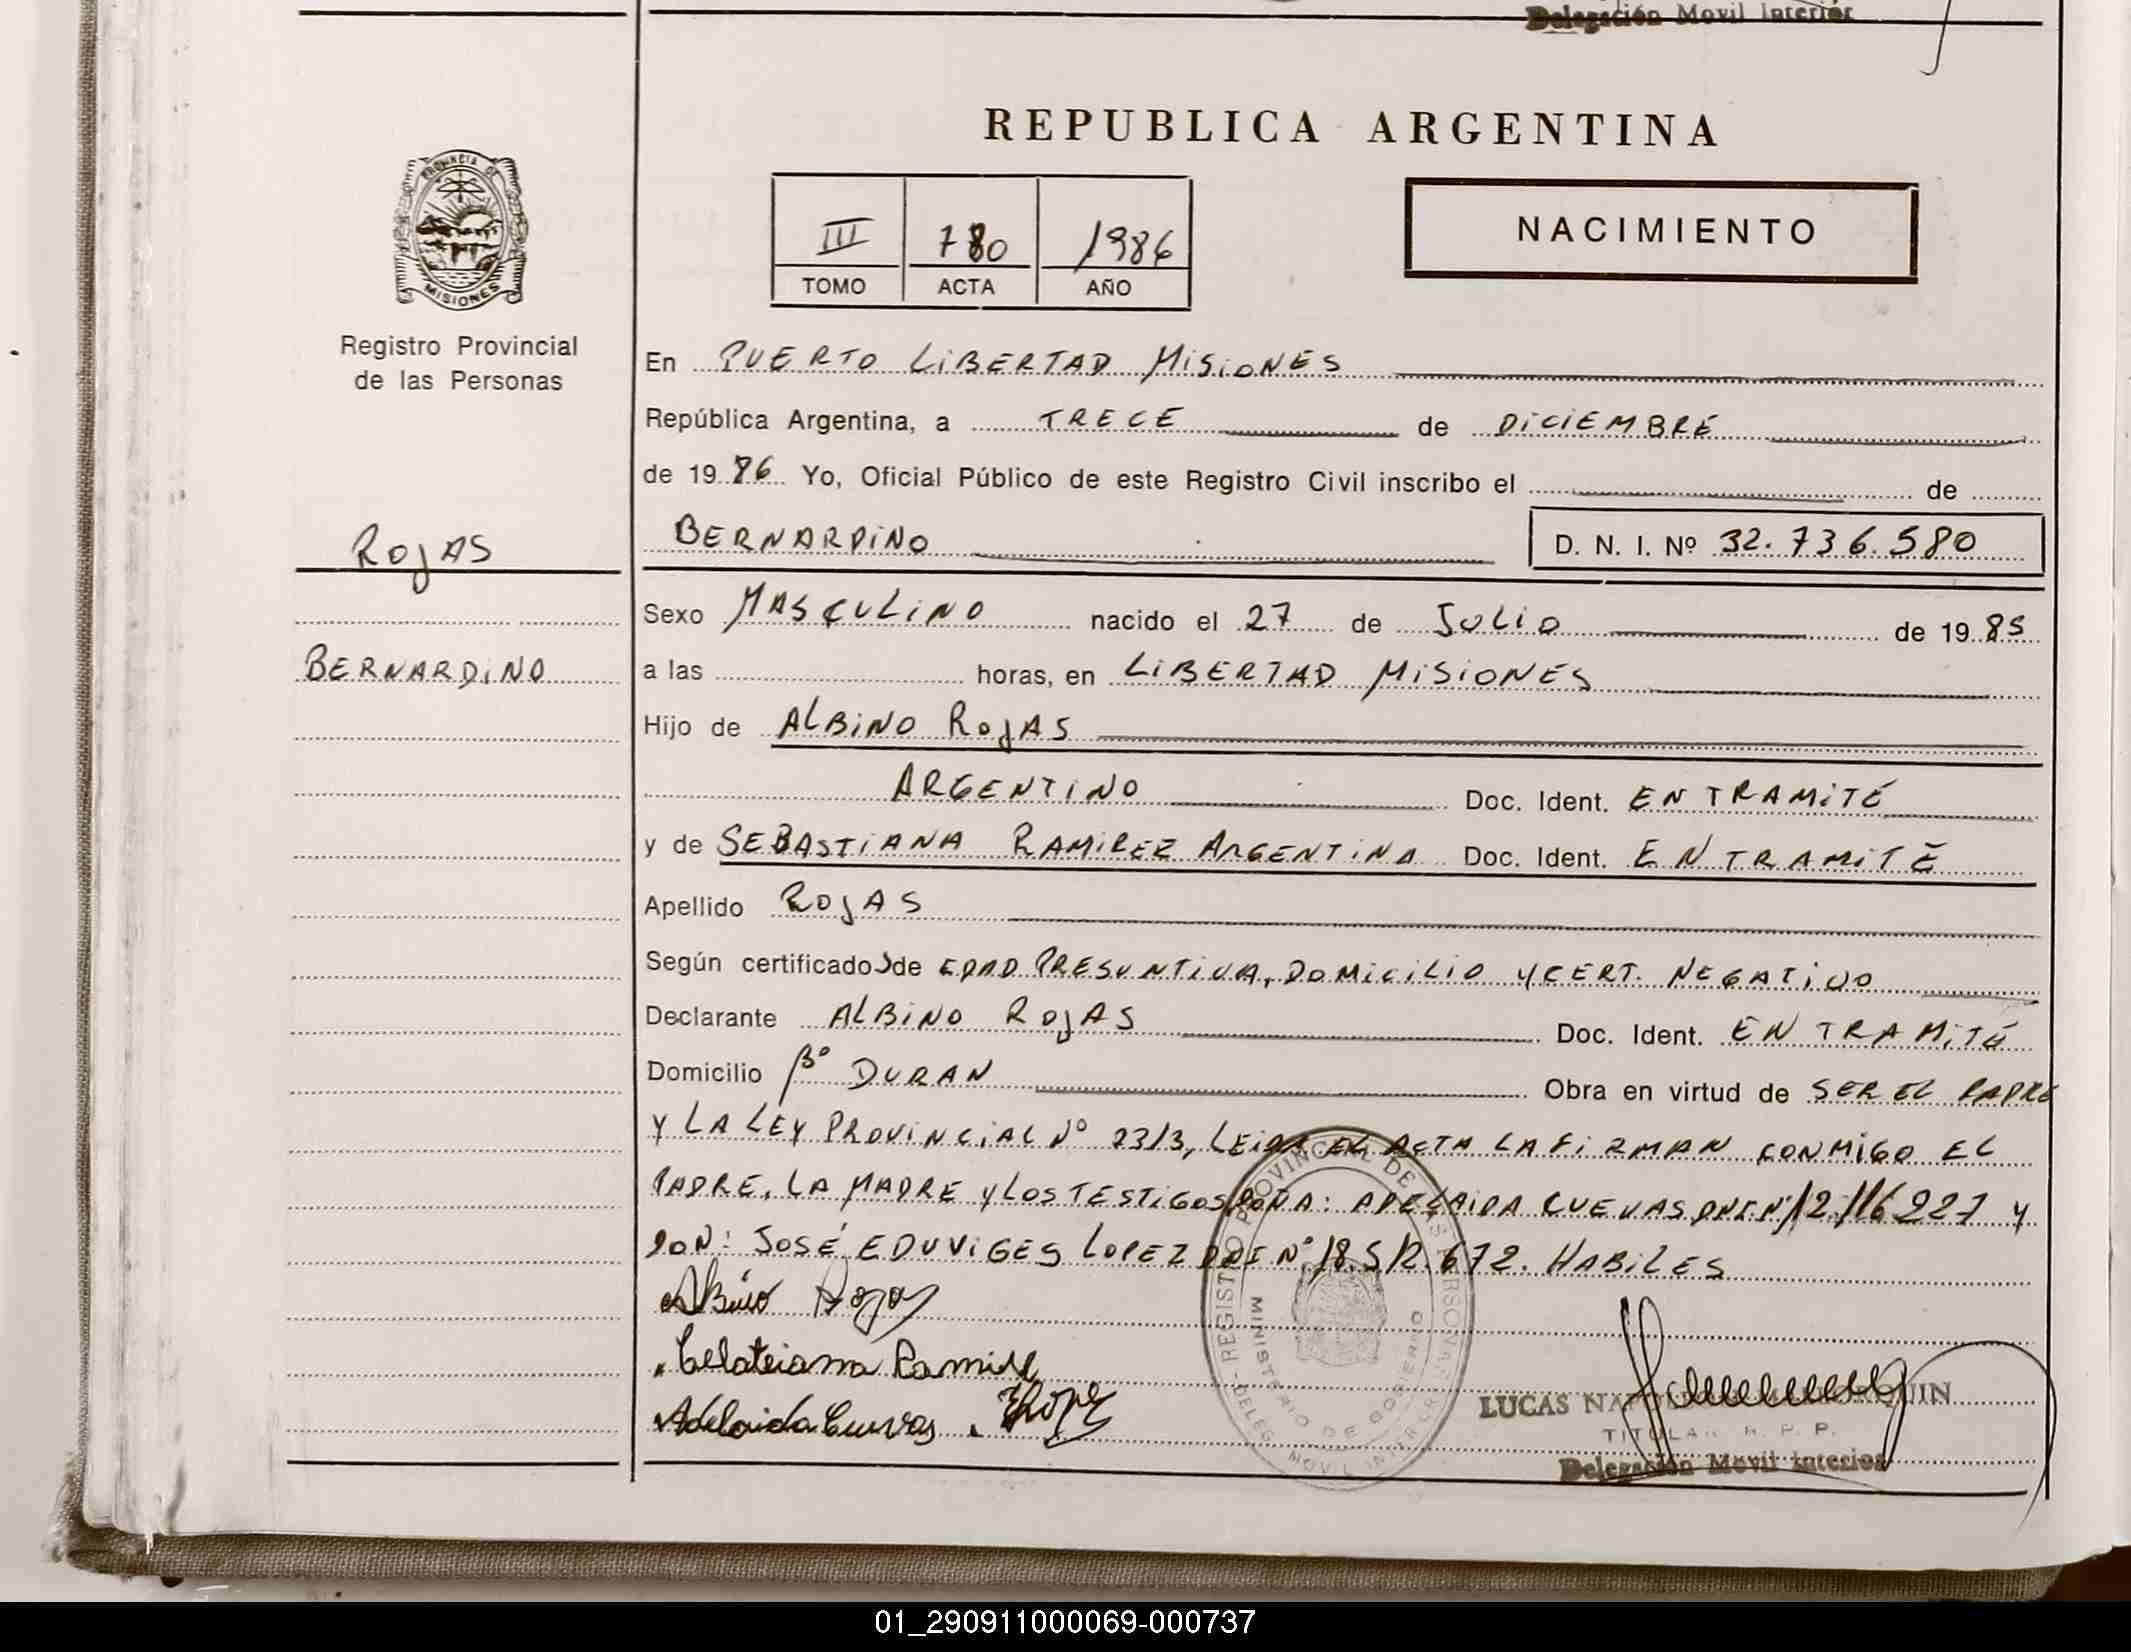 Delegación Movil Interior
REPUBLICA ARGENTINA
PROVINCIA DE
MISIONES
Registro Provincial
de las Personas
III 780 1986
TOMO ACTA AÑO
NACIMIENTO
En PUERTO LIBERTAD MISIONES
República Argentina, a TRECE de DICIEMBRE
de 19 86 Yo, Oficial Público de este Registro Civil inscribo el de
ROJAS
BERNARDINO D. N. I. Nº 32.736.580
Sexo MASCULINO nacido el 27 de JULIO de 19 85
BERNARDINO
a las horas, en LIBERTAD MISIONES
Hijo de ALBINO ROJAS
ARGENTINO Doc. Ident. EN TRAMITE
y de SEBASTIANA RAMIREZ ARGENTINA Doc. Ident. EN TRAMITE
Apellido ROJAS
Según certificado S de EDAD PRESUNTIVA, DOMICILIO Y CERT. NEGATIVO
Declarante ALBINO ROJAS Doc. Ident. EN TRAMITE
Domicilio Bº DURAN Obra en virtud de SER EL PADRE
Y LA LEY PROVINCIAL Nº 2313, LEIDA EL ACTA LA FIRMAN CONMIGO EL
PADRE, LA MADRE Y LOS TESTIGOS DOÑA: ADELAIDA CUEVAS DNI Nº 12.116.227 Y
DON: JOSÉ EDUVIGES LOPEZ DNI Nº 18.512.672. HABILES
Albino Rojas
Ramire
Adelaida Cuevas. ELopez
REGISTRO PROVINCIAL DE LAS PERSONAS
MINISTERIO DE GOBIERNO
DELEG. MOVIL INTERIOR
LUCAS
TITULAR R. P. P.
Delegación Movil Interior
01_290911000069-000737